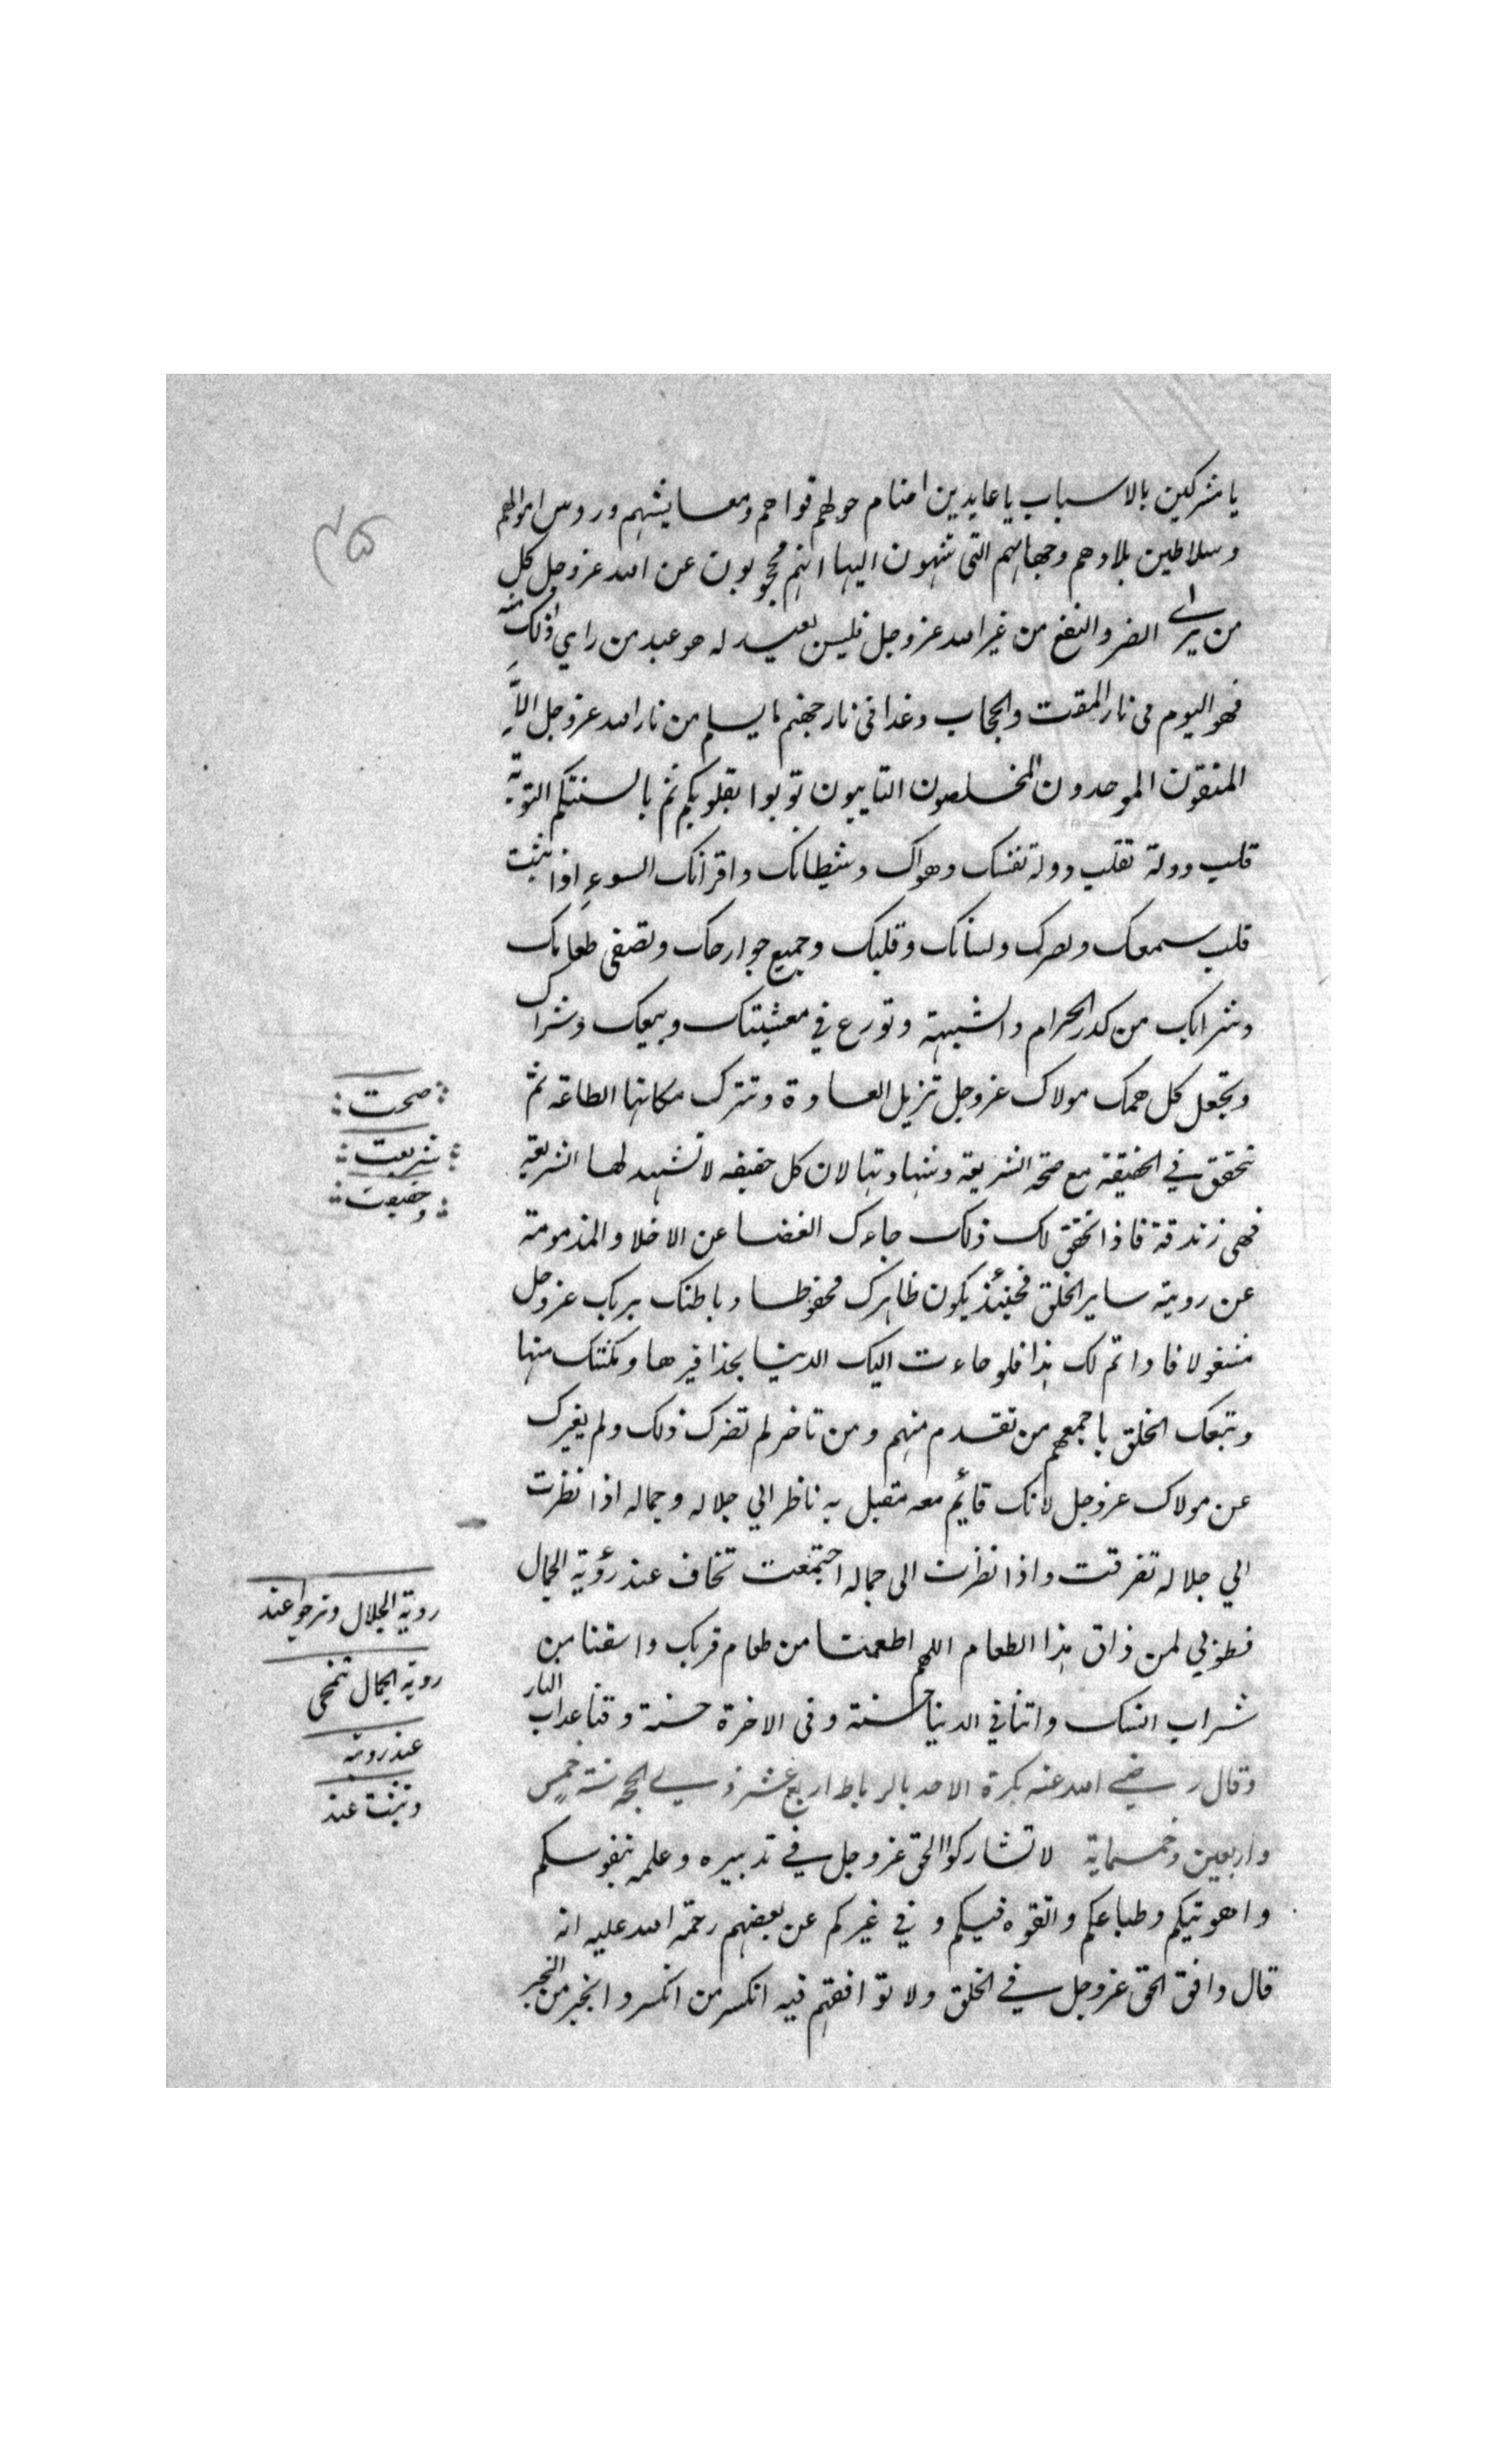 يا مشركين بالاسباب يا عابدين اصنام حولهم قواهم ومعايشهم وروس اموالهم
وسلاطين بلادهم وجهاتهم التى تنتهون اليها انهم محجوبون عن الله عزوجل كل
من يرى الضر والنفع من غير الله عزوجل فليس بعبد له هو عبد من راي ذلك منه
فهو اليوم فى نار المقت والحجاب وغدا فى نار جهنم ما يسلم من نار الله عزوجل الا
المتقون الموحدون المخلصون التايبون توبوا بقلوبكم ثم بالسنتكم التوبة
قلب دولة تقلب دولة نفسك وهواك وشيطانك واقرانك السوء اذا تبت
قلبت سمعك وبصرك ولسانك وقلبك وجميع جوارحك وتصفى طعامك
وشرابك من كدر الحرام والشبهة وتورع في معيشتك وبيعك وشراك
وتجعل كل همك مولاك عزوجل تزيل العادة وتترك مكانها الطاعة ثم
تحقق في الحقيقة مع صحة الشريعة وشهادتها لان كل حقيقه لا تشهد لها الشريعة
فهى زندقة فاذا تحقق لك ذلك جاءك الفضا عن الاخلاو المذمومة
عن روية ساير الخلق فحينئذ يكون ظاهرك محفوظا وباطنك بربك عزوجل
مشغولا فاذا تم لك هذا فلو جاءت اليك الدنيا بحذافيرها ومكنتك منها
وتبعك الخلق باجمعهم من تقدم منهم ومن تاخر لم تضرك ذلك ولم يغيرك
عن مولاك عزوجل لانك قائم معه مقبل به ناظر الي جلاله وجماله اذا نظرت
الي جلاله تفرقت واذا نظرت الى جماله اجتمعت تخاف عند رؤية الجمال
فطوبي لمن ذاق هذا الطعام اللهم اطعمنا من طعام قربك واسقنا من
شراب انسك واتنا في الدنيا حسنة وفى الاخرة حسنة وقنا عذاب النار
وقال رضي الله عنه بكرة الاحد بالرباط اربع عشر ذي الحجه سنة خمس
واربعين وخمسماية لا تشاركوا الحق عزوجل في تدبيره وعلمه بنفوسكم
واهويتكم وطباعكم واتقوه فيكم و في غيركم عن بعضهم رحمة الله عليه انه
قال وافق الحق عزوجل في الخلق ولا توافقهم فيه انكسر من انكسر وانجبر من انجبر
صحت
شريعت
وحقيقت
روية الجلال وترجوا عند
روية الجمال تنمحى
عند روية
وتثبت عند